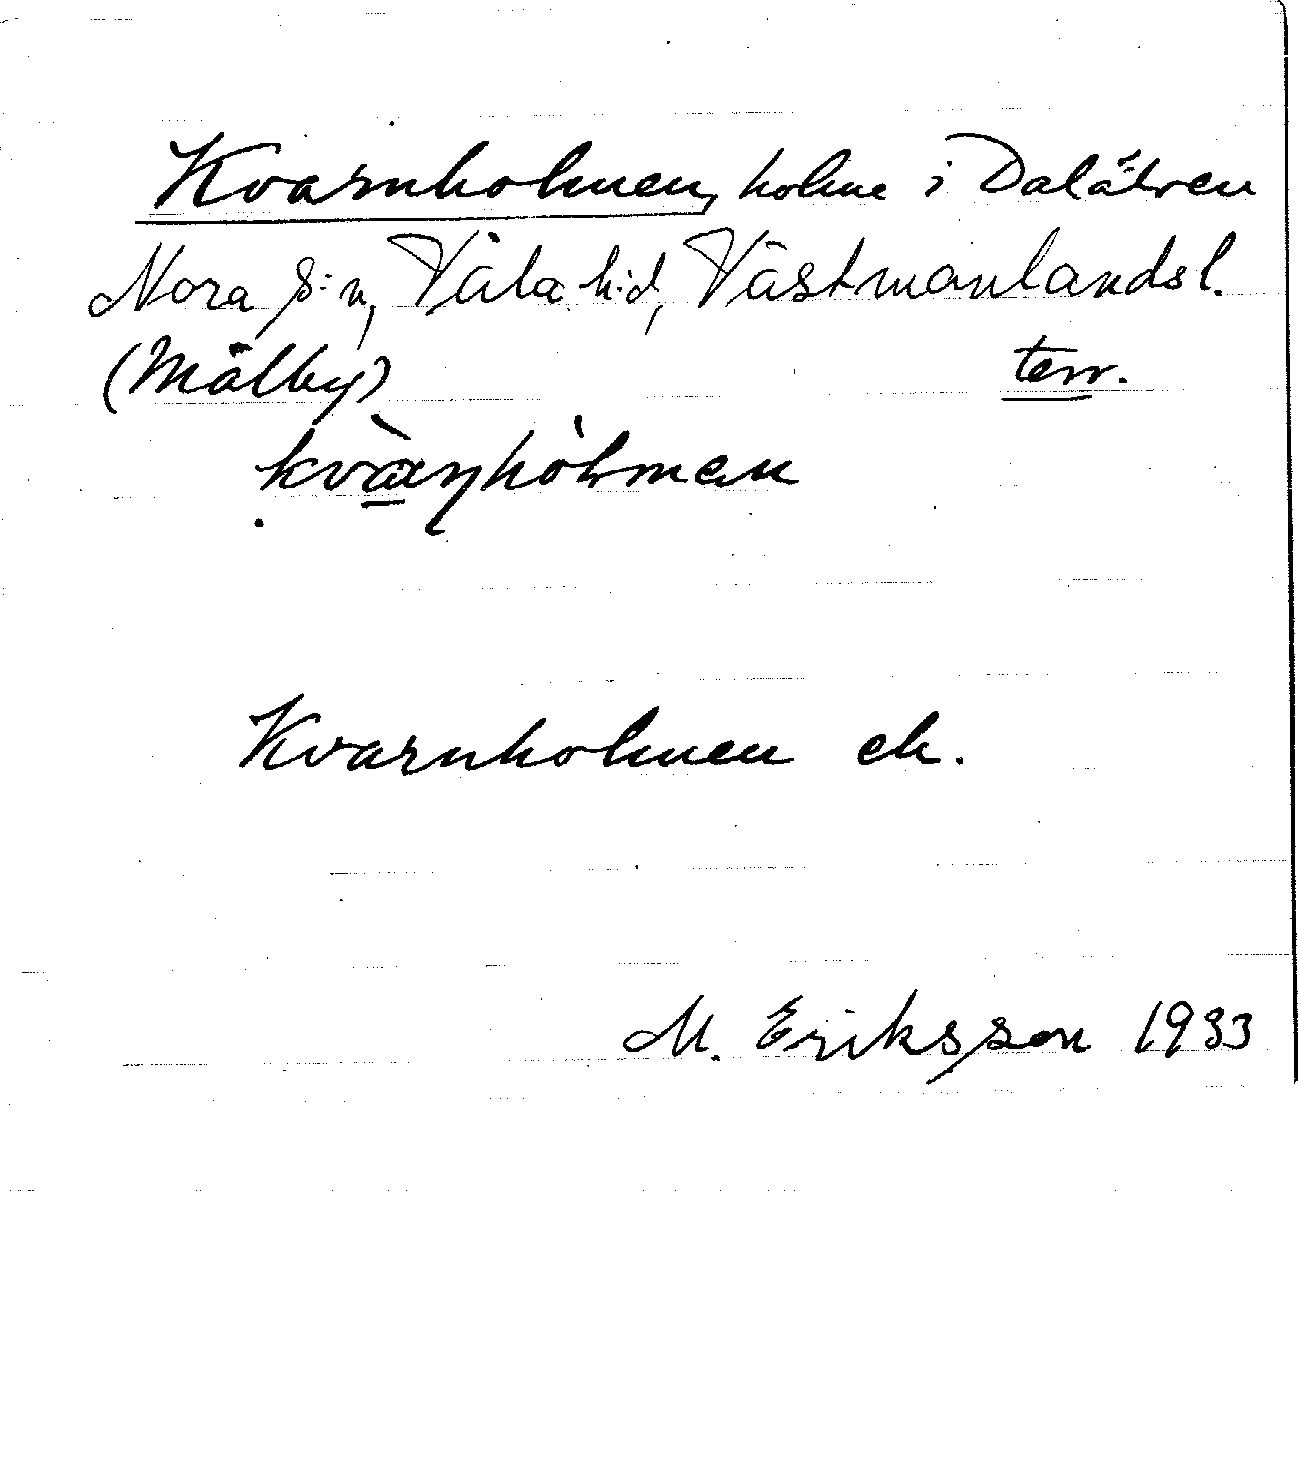 Kvarnholmen, holme i Dalälven
Nora s:n, Våla h:d, Västmanlands l.
(Mälby) terr.
kvànhòlmen
Kvarnholmen ek.
M. Eriksson 1933